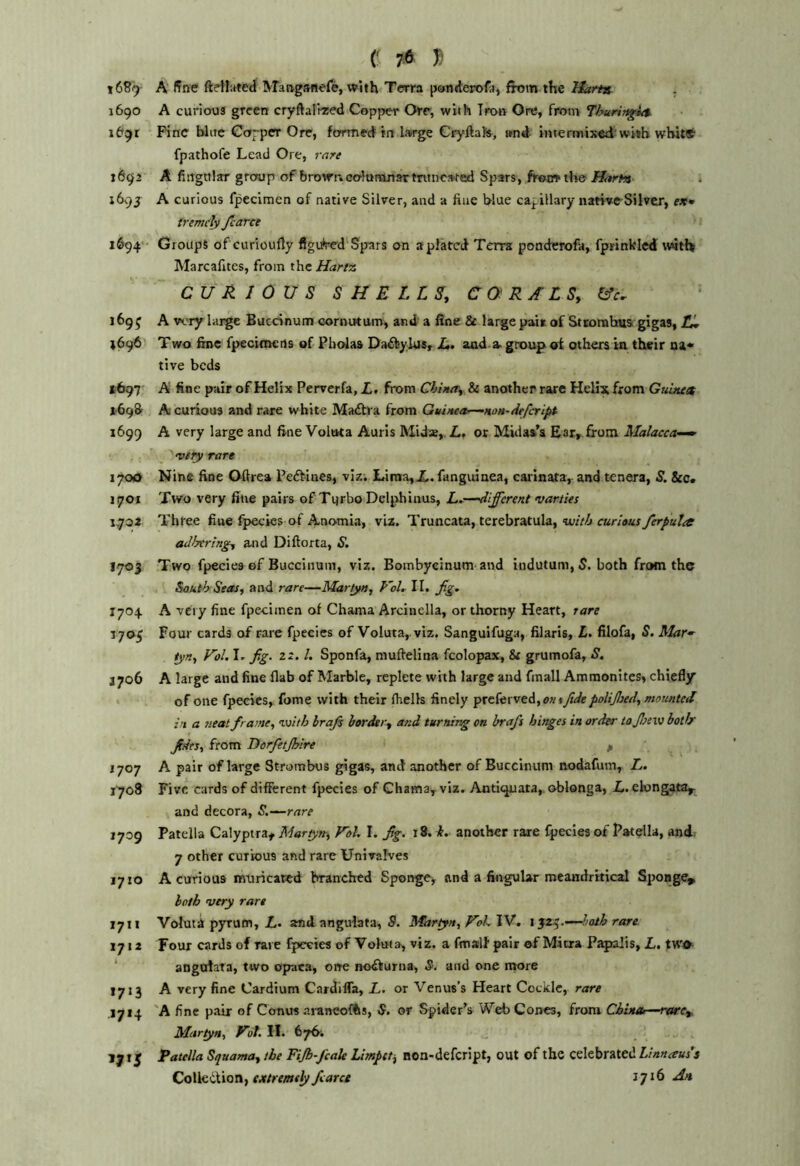 ( 76 )
1689 A fine ſtellated Manganeſe, with Terra ponderoſa, from the Hartz
1690 A curious green cryſtalized Copper Ore, with Iron Ore, from Thuringia
1691 Fine blue Copper Ore, formed in large Cryſtals, and intermixed with white
ſpathoſe Lead Ore, rare
1692 A ſingular group of brown columnar truncated Spars, from the Hartz
1693 A curious ſpecimen of native Silver, and a fine blue capillary native Silver, ex-
tremely ſcarce
1694 Groups of curiouſly figured Spars on a plated Terra ponderoſa, ſprinkled with
Marcaſites, from the Hartz
CURIOUS SHELLS, CORALS, &c.
1695 A very large Buccinum cornutum, and a fine & large pair of Strombus gigas, L.
1696 Two fine ſpecimens of Pholas Dactylus, L. and a group of others in their na-
tive beds
1697 A fine pair of Helix Perverſa, L. from China, & another rare Helix from Guinea
1698 A curious and rare white Mactra from Guinea—non-deſcript
1699 A very large and fine Voluta Auris Midæ, L. or Midas's Ear, from Malacca—
very rare
1700 Nine fine Oſtrea Pectines, viz. Lima, L. ſanguinea, carinata, and tenera, S. &c.
1701 Two very fine pairs of Turbo Delphinus, L.—different varties
1702 Three fine ſpecies of Anomia, viz. Truncata, terebratula, with curious ſerpulæ
adhering, and Diſtorta, S.
1703 Two ſpecies of Buccinum, viz. Bombycinum and indutum, S. both from the
South Seas, and rare—Martyn, Vol. II. fig.
1704 A very fine ſpecimen of Chama Arcinella, or thorny Heart, rare
1705 Four cards of rare ſpecies of Voluta, viz. Sanguiſuga, filaris, L. filoſa, S. Mar-
tyn, Vol. I. fig. 22. l. Sponſa, muſtelina ſcolopax, & grumoſa, S.
1706 A large and fine ſlab of Marble, replete with large and ſmall Ammonites, chiefly
of one ſpecies, ſome with their ſhells finely preſerved, on 1 ſide poliſhed, mounted
in a neat frame, with braſs border, and turning on braſs hinges in order to ſhew both
ſides, from Dorſetſhire
1707 A pair of large Strombus gigas, and another of Buccinum nodaſum, L.
1708 Five cards of different ſpecies of Chama, viz. Antiquata, oblonga, L. elongata,
and decora, S.—rare
1709 Patella Calyptra, Martyn, Vol. I. fig. 18. k. another rare ſpecies of Patella, and
7 other curious and rare Univalves
1710 A curious muricated branched Sponge, and a ſingular meandritical Sponge,
both very rare
1711 Voluta pyrum, L. and angulata, S. Martyn, Vol. IV. 1325.—both rare
1712 Four cards of rare ſpecies of Voluta, viz. a ſmall pair of Mitra Papalis, L. two
angulata, two opaca, one nocturna, S. and one more
1713 A very fine Cardium Cardiſſa, L. or Venus's Heart Cockle, rare
1714 A fine pair of Conus araneoſus, S. or Spider's Web Cones, from China—rare,
Martyn, Vol. II. 676.
1715 Patella Squama, the Fiſh-ſcale Limpet, non-deſcript, out of the celebrated Linnæus's
Collection, extremely ſcarce
1716 An